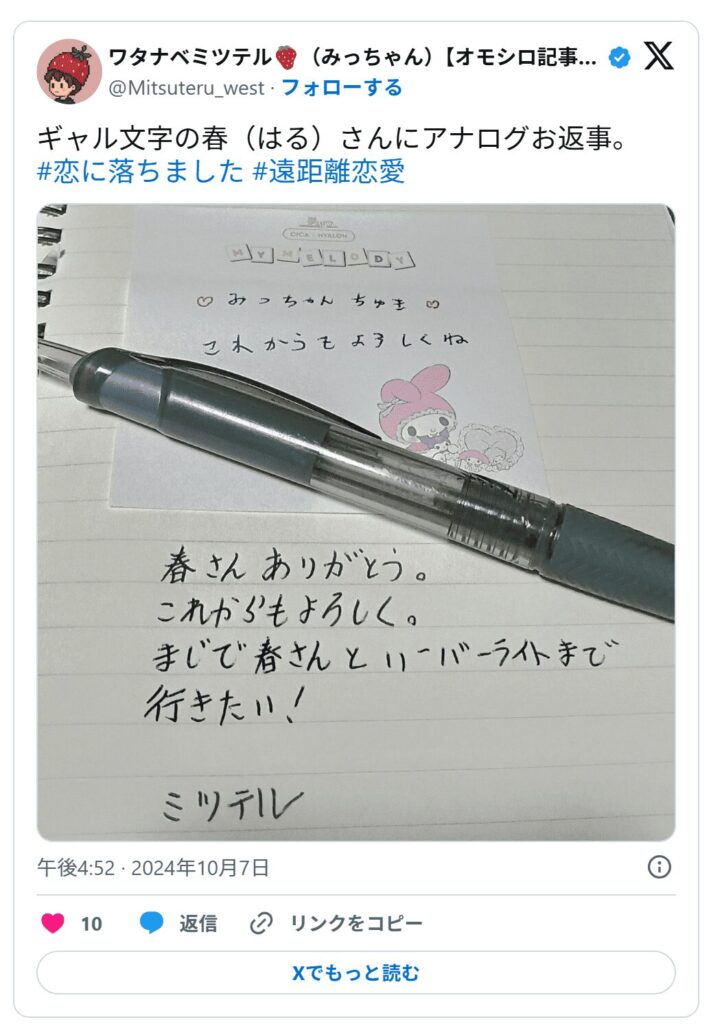 ワタナベミツテル🍓（みっちゃん）【オモシロ記事...
@Mitsuteru_west · フォローする
ギャル文字の春（はる）さんにアナログお返事。
#恋に落ちました #遠距離恋愛
CICA × HYALON
MY MELODY
♡ みっちゃん ちゅき ♡
これからもよろしくね
春さんありがとう。
これからもよろしく。
まじで春さんとリバーライトまで
行きたい!
ミツテル
午後4:52 · 2024年10月7日
10 返信 リンクをコピー
Xでもっと読む